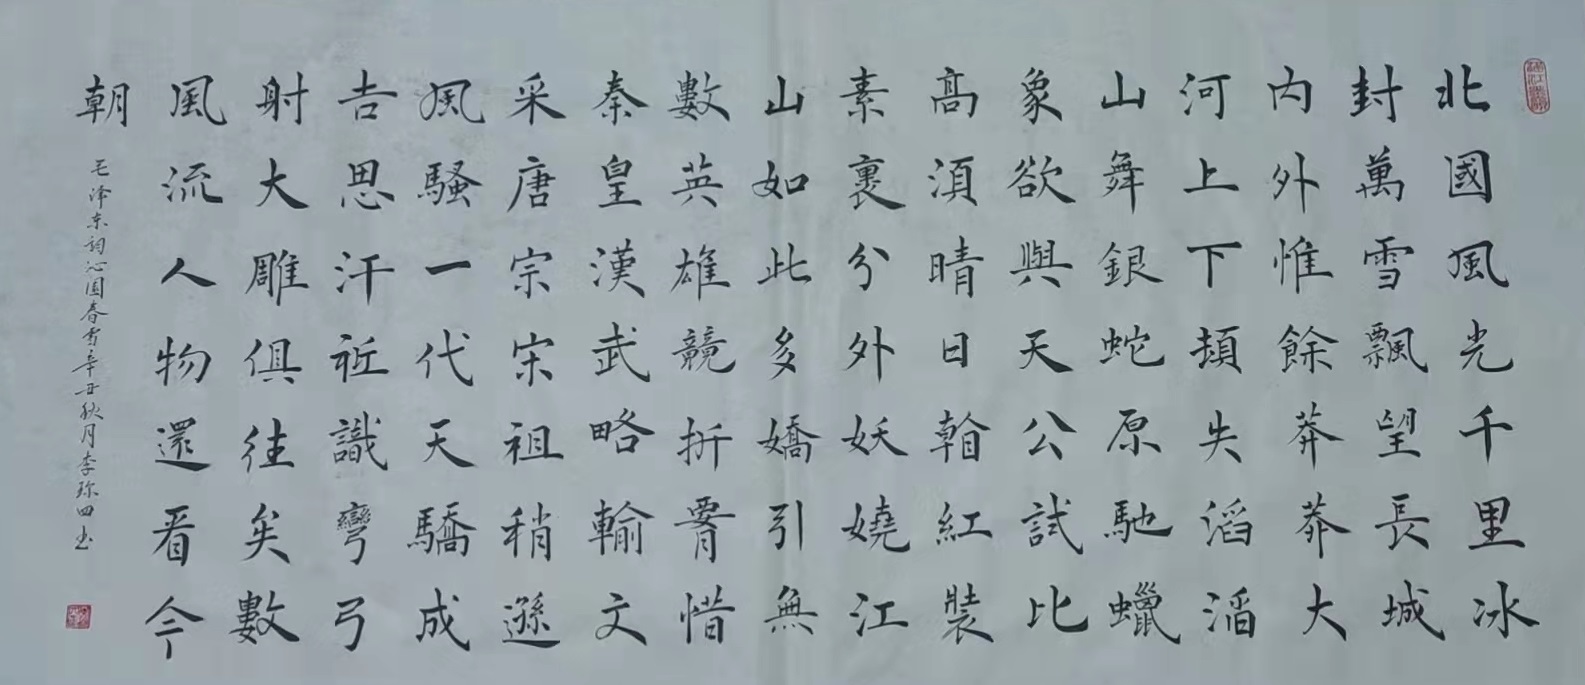 北國風光千里冰
封萬雪飄望長城
内外惟餘莽莽大
河上下頓失滔滔
山舞銀蛇原馳蠟
象欲與天公試比
高湏晴日紅裝
素裹分外妖嬈江
山如此多嬌引無
數英雄競折惜
秦皇漢武略輸文
采唐宗宋祖稍遜
風騷一代天驕成
吉思汗祗識彎弓
射大雕俱往矣數
風流人物還看今
朝
毛泽东词沁园春雪辛丑秋月李珎四书